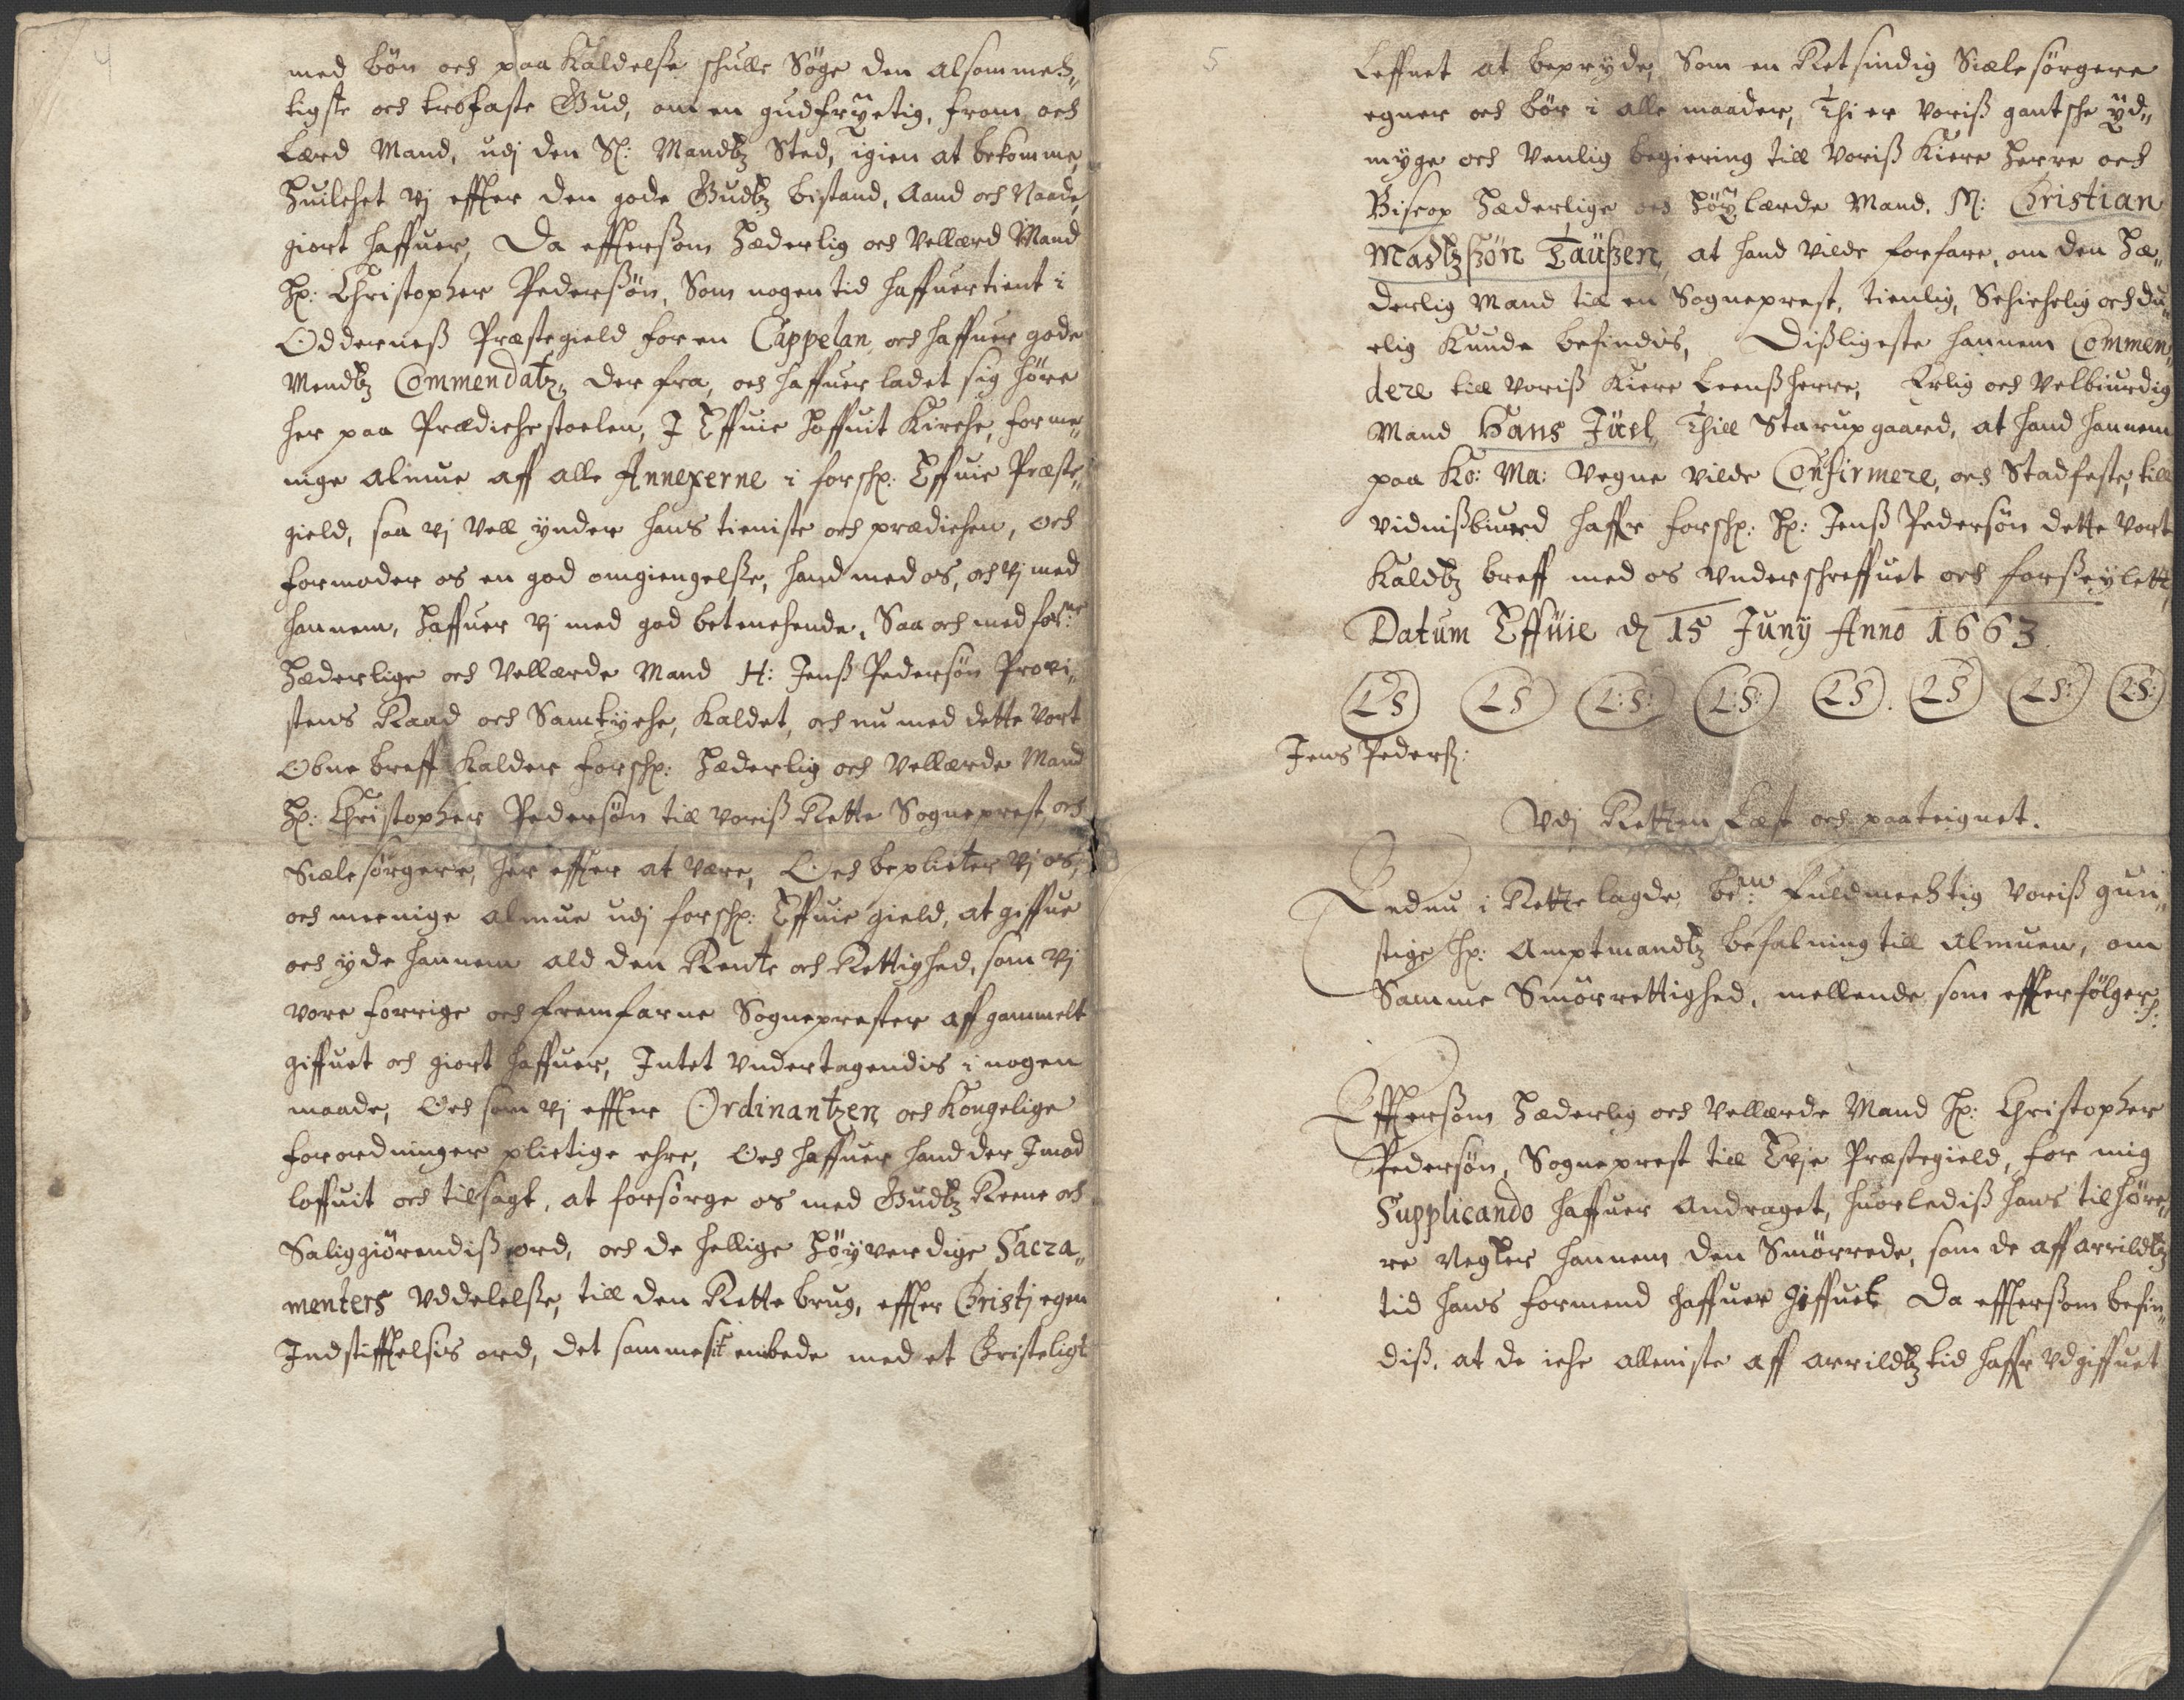 4
med bön och paa Kaldelse schulle Söge den alsommech„
tigste och trofaste Gud, om en gudfryctig, from och
Lærd Mand, udj den Sl: Mandtz Sted, igien at bekomme,
Huilchet vj effter den gode Gudtz bistand, Aand och Naade,
giort haffuer, Da effterssom Hæderlig och Vellærd Mand
Hr: Christopher Pederssön, Som nogen tid haffuer tient i
Odderness Præstegield for en Cappelan, och haffuer gode
Mendtz Commendatz, der fra, och haffuer ladet sig höre
her paa Prædichestoelen, J Effuie Hoffuit Kirche, for me„
nige almue aff alle Annexerne i forschr: Effuie Præste„
gield, saa vj vell ynder hans tieniste och prædichen, och
formoder os en god omgiengelsse, hand med os, och vj med
hannem, Haffuer vj med god betenchende, Saa och med forne
Hæderlige och Vellærde Mand H: Jenss Pedersön Provi„
stens Raad och Samtyche, Kaldet, och nu med dette Vort
Obne breff Kalder forschr: Hæderlig och Vellærde Mand
Hr: Christopher Pedersön till voriss Rette Sogneprest, och
Siælesörgere, her effter at være, Och beplicter vj os,
och meenige almue udj forschr: Effuie gield, at giffue
och yde hannem ald den Rente och Rettighed, som vj
vore forrige och fremfarne Sogneprester aff gammelt
giffuet och giort haffuer, Intet Vndertagendis i nogen
maade, Och som vj effter Ordinantzen och Kongelige
forordninger plictige ehre, Och haffuer hand der Jmod
loffuit och tilsagt, at forsörge os med Gudtz Reene och
Saliggiörendiss ord, och de hellige Höyverdige Sacra„
menters Vddelelsse, till den Rette brug, effter Christj egen
Indstifftelsis ord, det samme sit embede med et Christeligt
5
Leffnet at bepryde, Som en Retsindig Siælesörgere
egner och bör i alle maader, Thi er voriss gantsche yd„
myge och Venlig begiering till voriss Kiere Herre och
Biscop Hæderlige och Höylærde Mand, M: Christian
Madtzssön Taüssen, at hand vilde forfare, om den Hæ„
derlig Mand till en Sogneprest, tienlig, Schichelig och du„
elig Kunde befindis, Dissligeste hannem Commen„
dere till voriss Kiere Leenssherre, Erlig och Velbiurdig
Mand Hans Jüel, Thill Starupgaard, at hand hannem
paa Ko: Ma: Vegne vilde Confirmere, och Stadfeste, till
vidnissburd haffr forschr: Hr: Jenss Pedersön dette vort
Kaldtz breff med os Vnderschreffuet och forsseylett,
Datum Effüie d. 15 Juny Anno 1663
LS LS L:S: L:S: LS. LS LS: LS:
Jens Pederss:
Vdj Retten Læst och paateignet.
Endnu i Rette lagde, bete: Fuldmechtig voriss gun„
stige Hr: Amptmandtz befalning till Almuen, om
Samme Smörrettighed, mellende som effterfölger:
Effterssom Hæderlig och Vellærde Mand Hr: Christopher
Pedersön, Sogneprest till Evje Præstegield, for mig
Supplicando haffuer Andraget, huorlediss hans tilhöre„
re Negter hannem den Smörrede, som de aff arrildtz
tid hans formend haffuer giffuet Da effterssom befin„
diss, at de iche alleniste aff arrildtz tid haffr Vdgiffuet